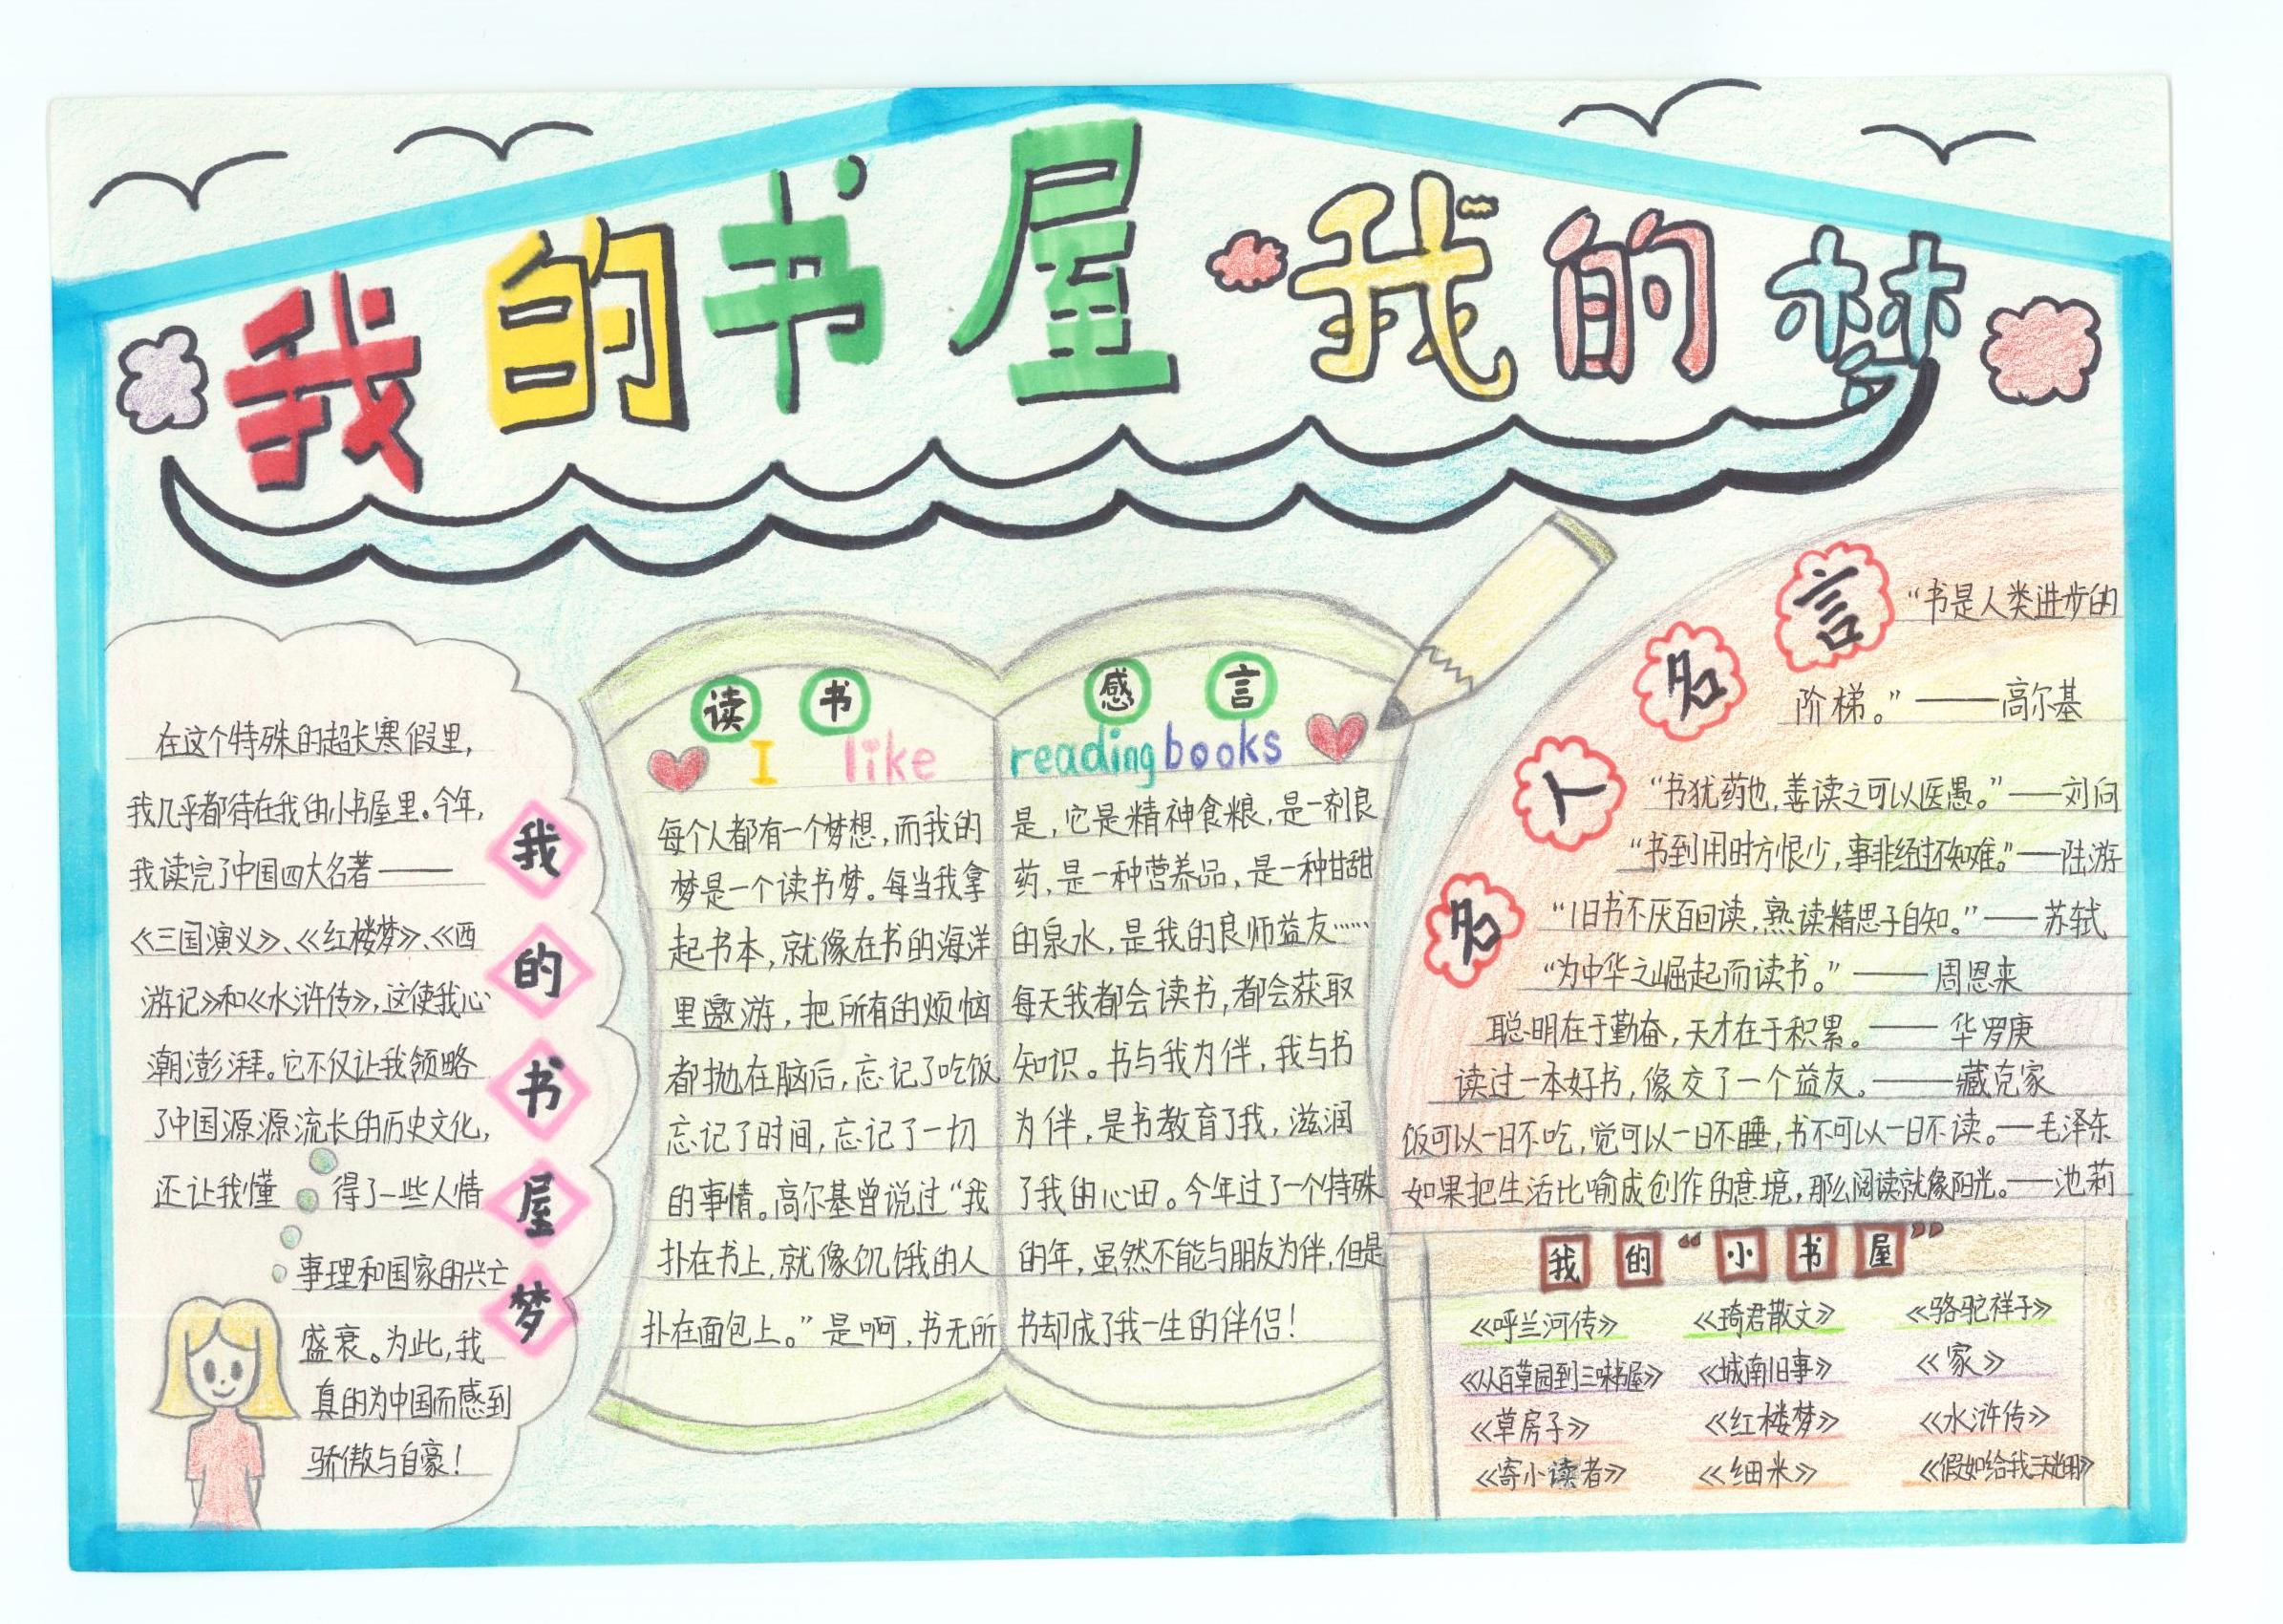 我的书屋 我的梦
我的书屋梦
在这个特殊的超长寒假里，
我几乎都待在我的小书屋里。今年，
我读完了中国四大名著——
《三国演义》、《红楼梦》、《西
游记》和《水浒传》，这使我心
潮澎湃。它不仅让我领略
了中国源源流长的历史文化，
还让我懂得了一些人情
事理和国家的兴亡
盛衰。为此，我
真的为中国而感到
骄傲与自豪！
读书感言
I like reading books
每个人都有一个梦想，而我的
梦是一个读书梦。每当我拿
起书本，就像在书的海洋
里遨游，把所有的烦恼
都抛在脑后，忘记了吃饭
忘记了时间，忘记了一切
的事情。高尔基曾说过“我
扑在书上，就像饥饿的人
扑在面包上。”是啊，书无所
是，它是精神食粮，是一剂良
药，是一种营养品，是一种甘甜
的泉水，是我的良师益友……
每天我都会读书，都会获取
知识。书与我为伴，我与书
为伴，是书教育了我，滋润
了我的心田。今年过了一个特殊
的年，虽然不能与朋友为伴，但是
书却成了我一生的伴侣！
名人名言
“书是人类进步的
阶梯。”——高尔基
“书犹药也，善读之可以医愚。”——刘向
“书到用时方恨少，事非经过不知难。”—陆游
“旧书不厌百回读，熟读精思子自知。”——苏轼
“为中华之崛起而读书。”——周恩来
聪明在于勤奋，天才在于积累。——华罗庚
读过一本好书，像交了一个益友。——臧克家
饭可以一日不吃，觉可以一日不睡，书不可以一日不读。—毛泽东
如果把生活比喻成创作的意境，那么阅读就像阳光。——池莉
我的“小书屋”
《呼兰河传》 《琦君散文》 《骆驼祥子》
《从百草园到三味书屋》 《城南旧事》 《家》
《草房子》 《红楼梦》 《水浒传》
《寄小读者》 《细米》 《假如给我三天光明》